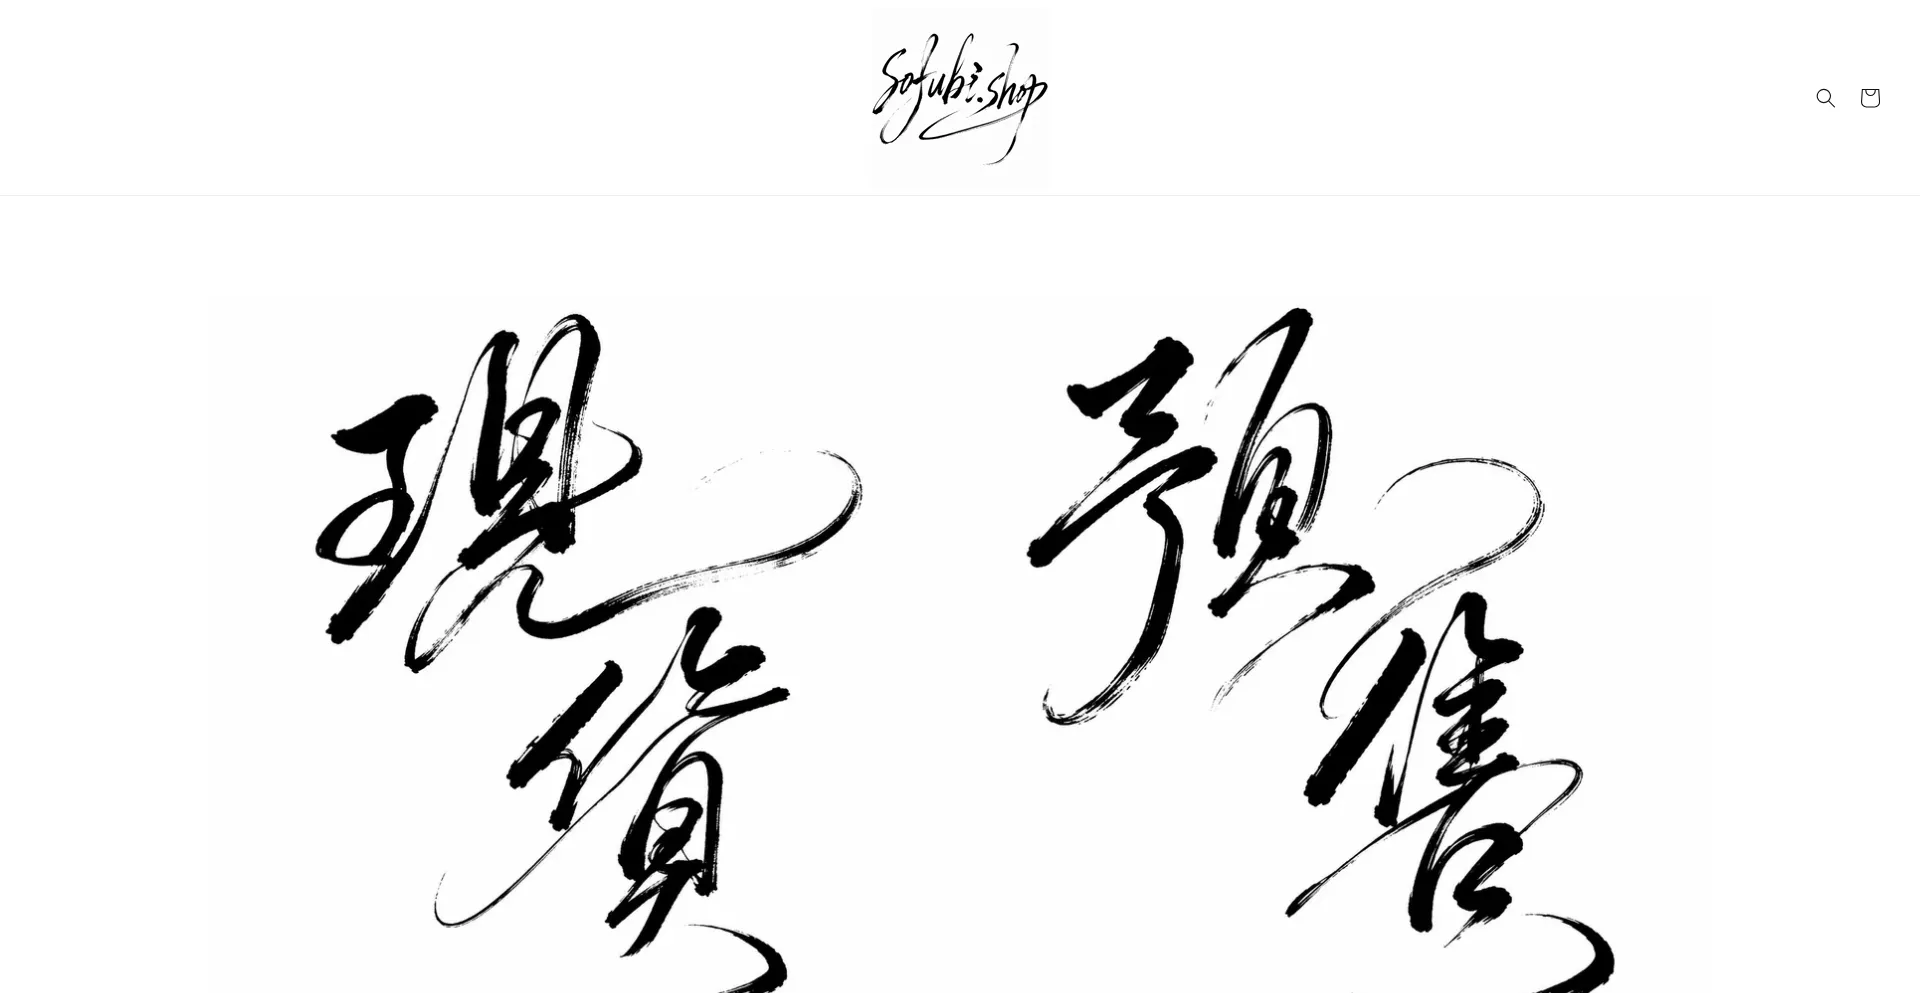 Sofubi.shop
現貨
預售